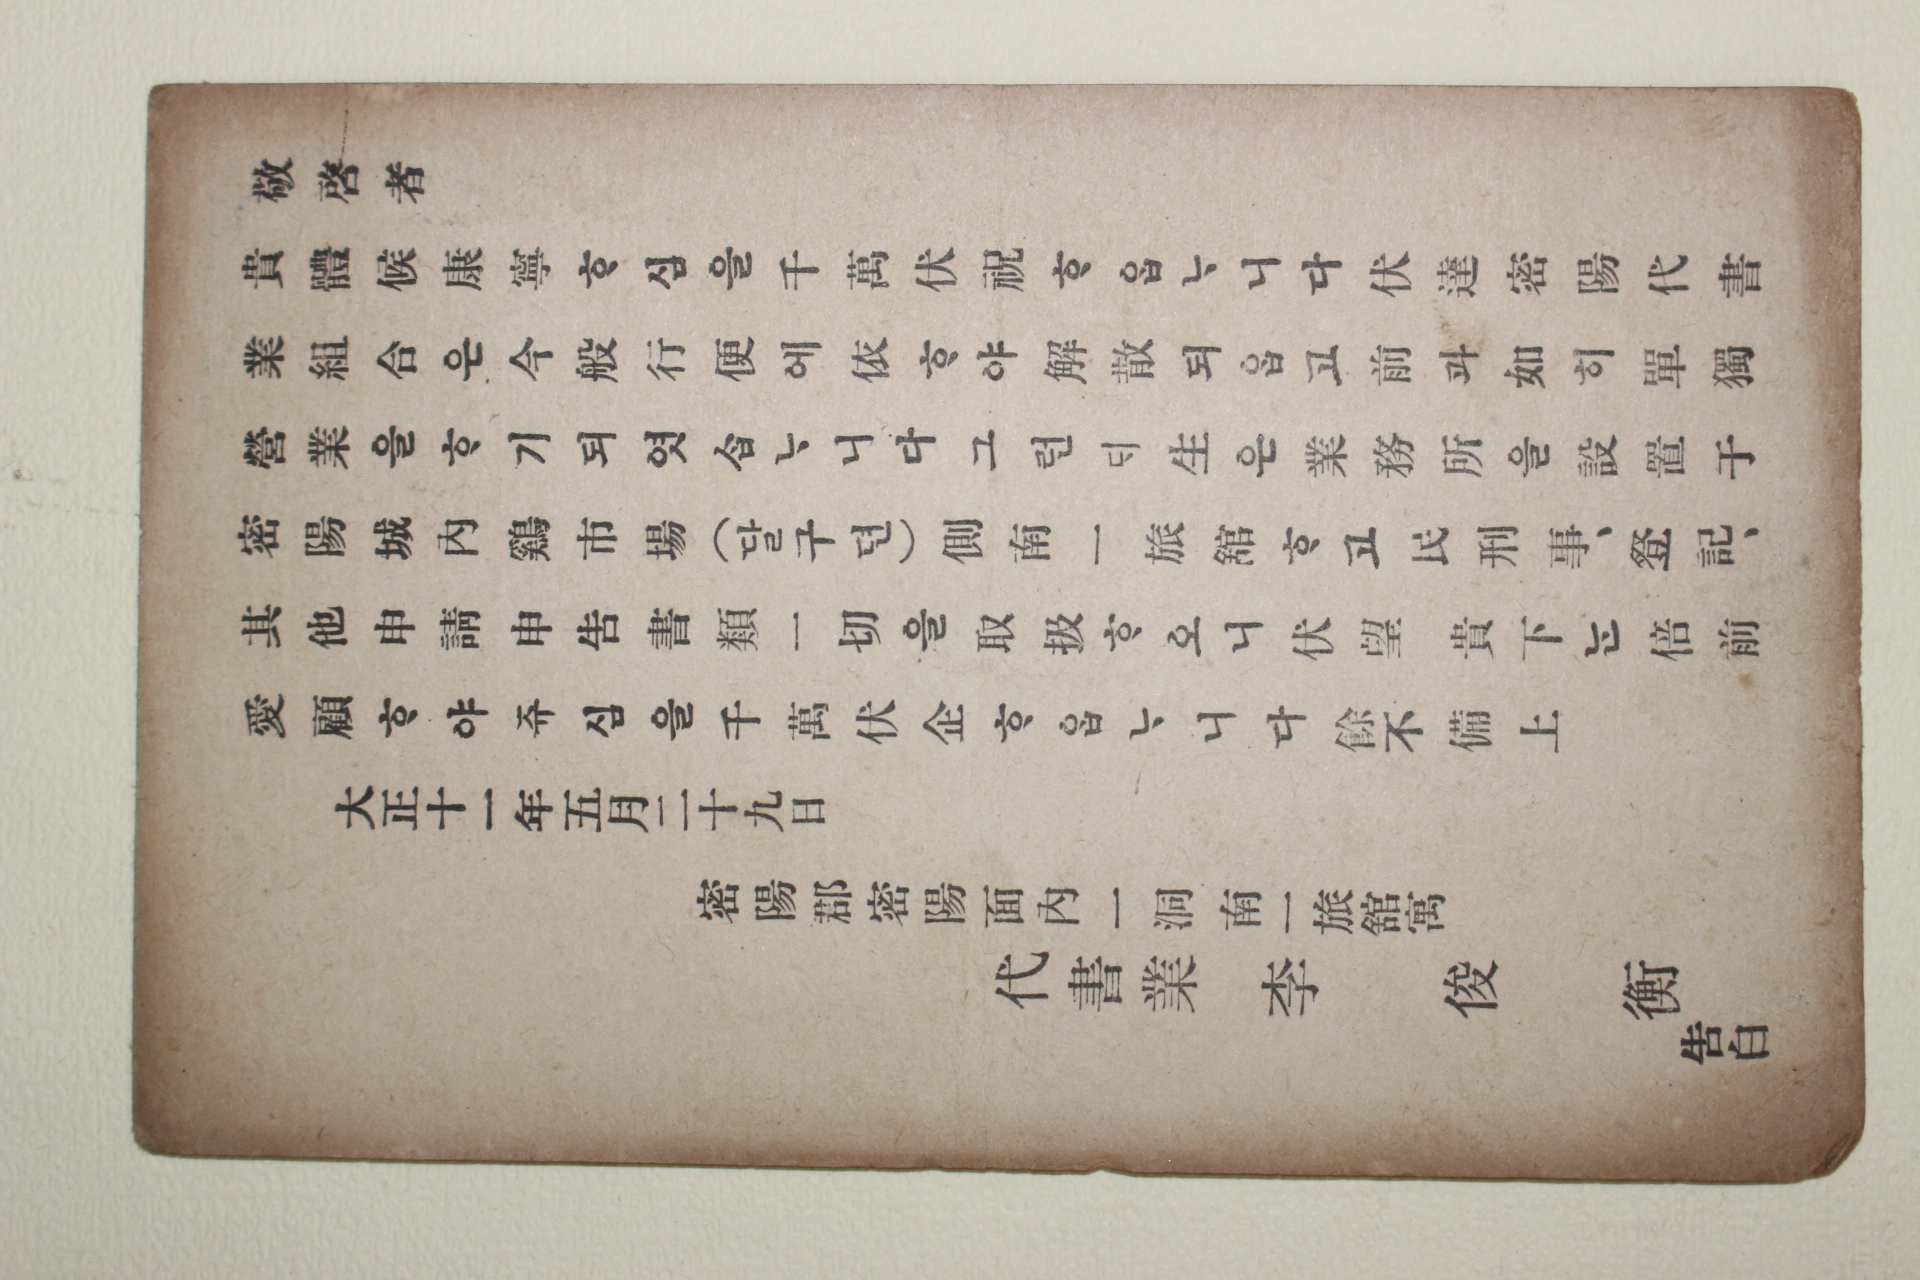 敬啓者
貴體候康寧ᄒᆞ심을千萬伏祝ᄒᆞ옵ᄂᆞ니다伏達密陽代書
業組合은今般行便에依ᄒᆞ야解散되옵고前과如히單獨
營業을ᄒᆞ기되엿솝ᄂᆞ니다그런ᄃᆡ生은業務所을設置于
密陽城內鷄市場(달구뎐)側南一旅舘ᄒᆞ고民刑事、登記、
其他申請申告書類一切을取扱ᄒᆞ오니伏望 貴下는倍前
愛顧ᄒᆞ야쥬심을千萬伏企ᄒᆞ옵ᄂᆞ니다 餘不備上
大正十一年五月二十九日
密陽郡密陽面內一洞南一旅舘寓
代書業 李俊衡
告白